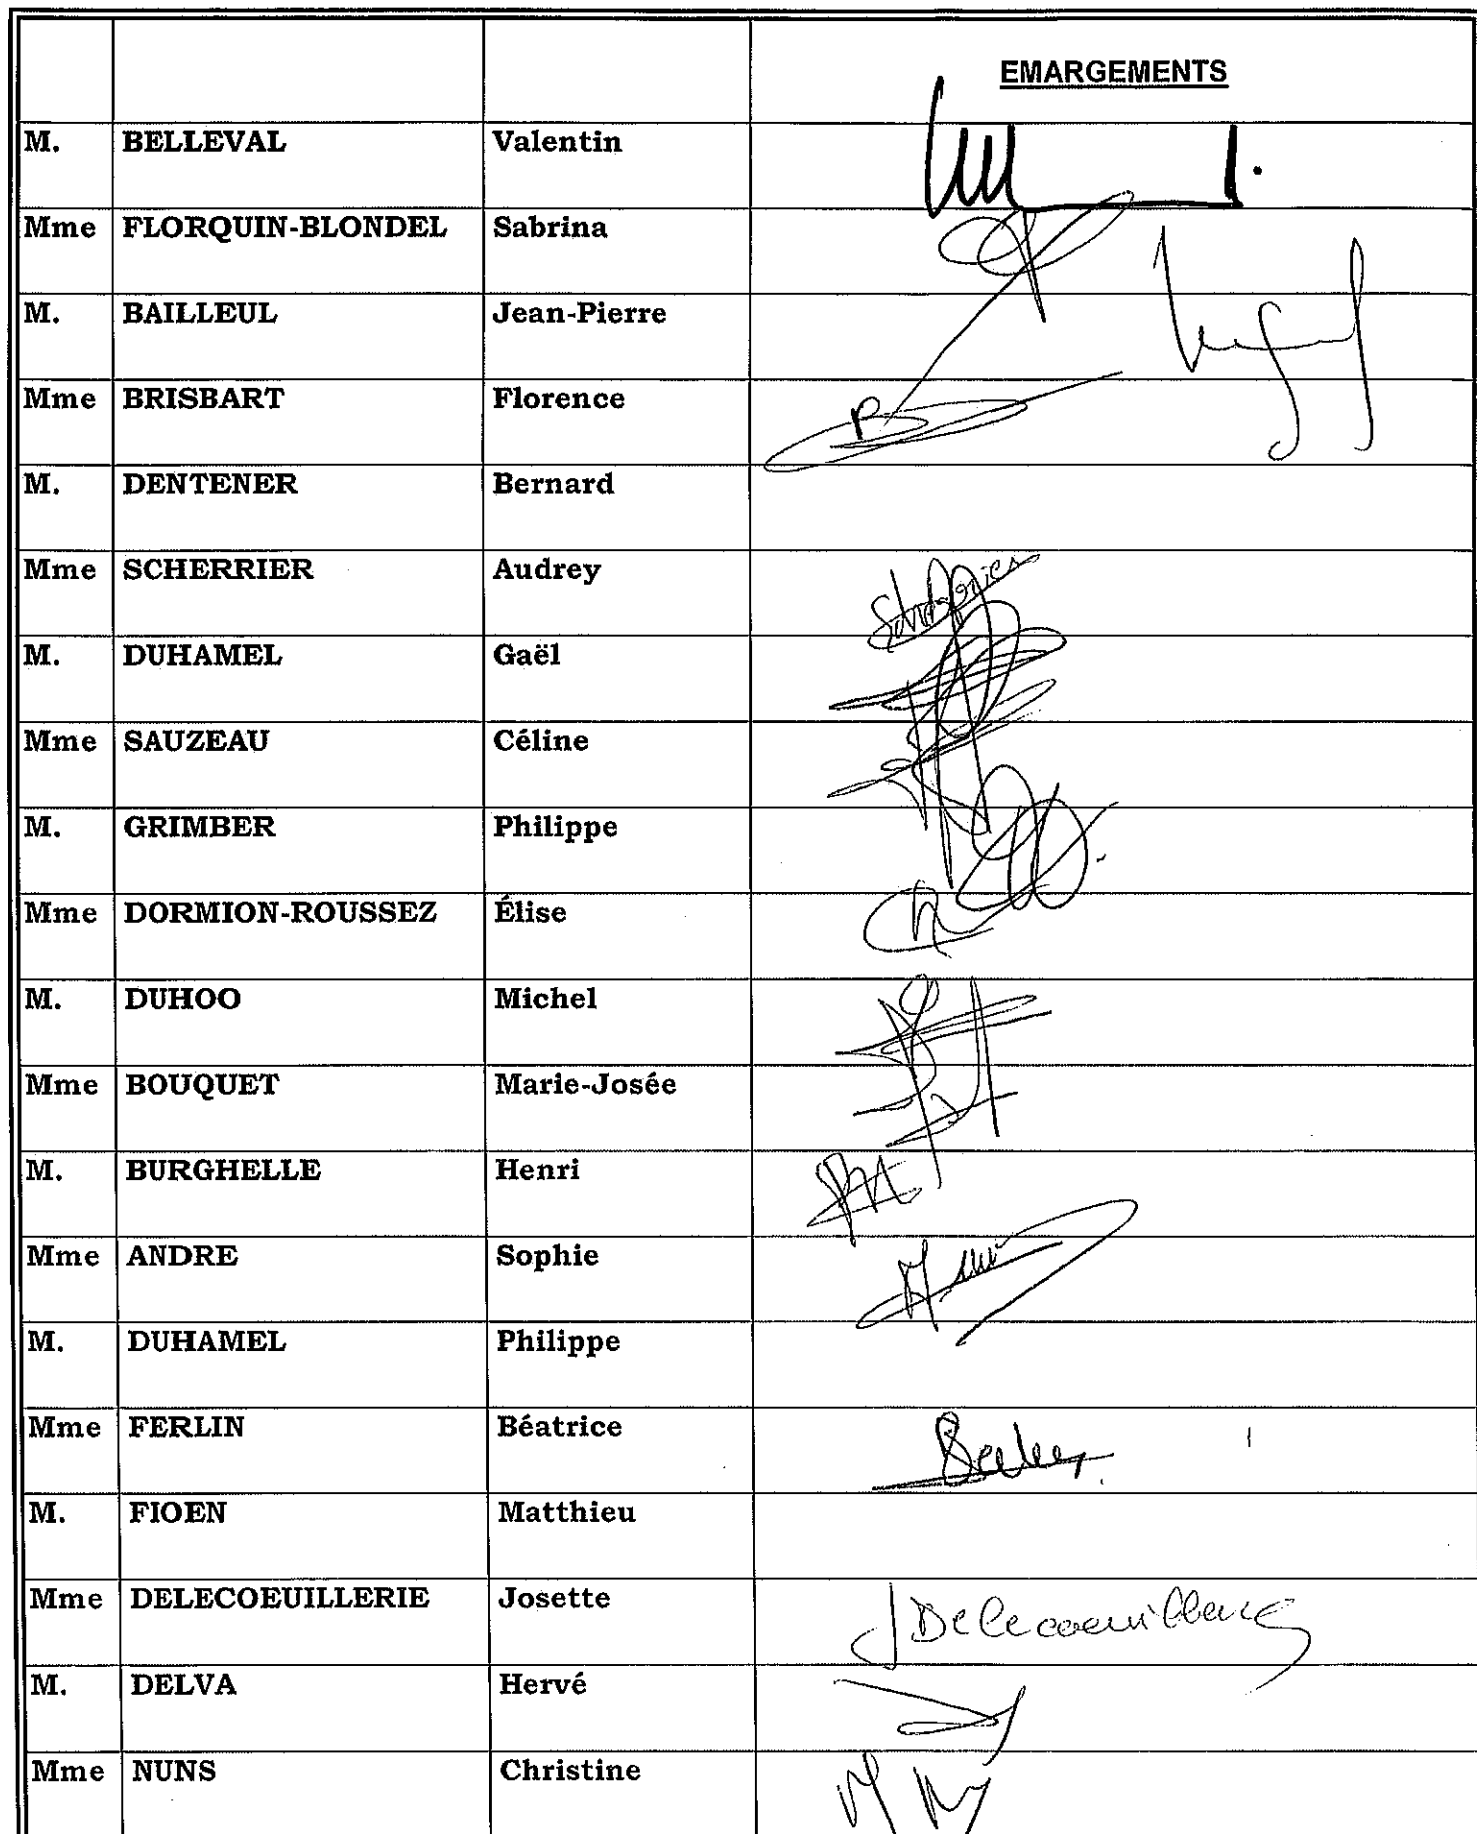 EMARGEMENTS
M. BELLEVAL Valentin
Mme FLORQUIN-BLONDEL Sabrina
M. BAILLEUL Jean-Pierre
Mme BRISBART Florence
M. DENTENER Bernard
Mme SCHERRIER Audrey
M. DUHAMEL Gaël
Mme SAUZEAU Céline
M. GRIMBER Philippe
Mme DORMION-ROUSSEZ Élise
M. DUHOO Michel
Mme BOUQUET Marie-Josée
M. BURGHELLE Henri
Mme ANDRE Sophie
M. DUHAMEL Philippe
Mme FERLIN Béatrice
M. FIOEN Matthieu
Mme DELECOEUILLERIE Josette JDelecoeuillerie
M. DELVA Hervé
Mme NUNS Christine